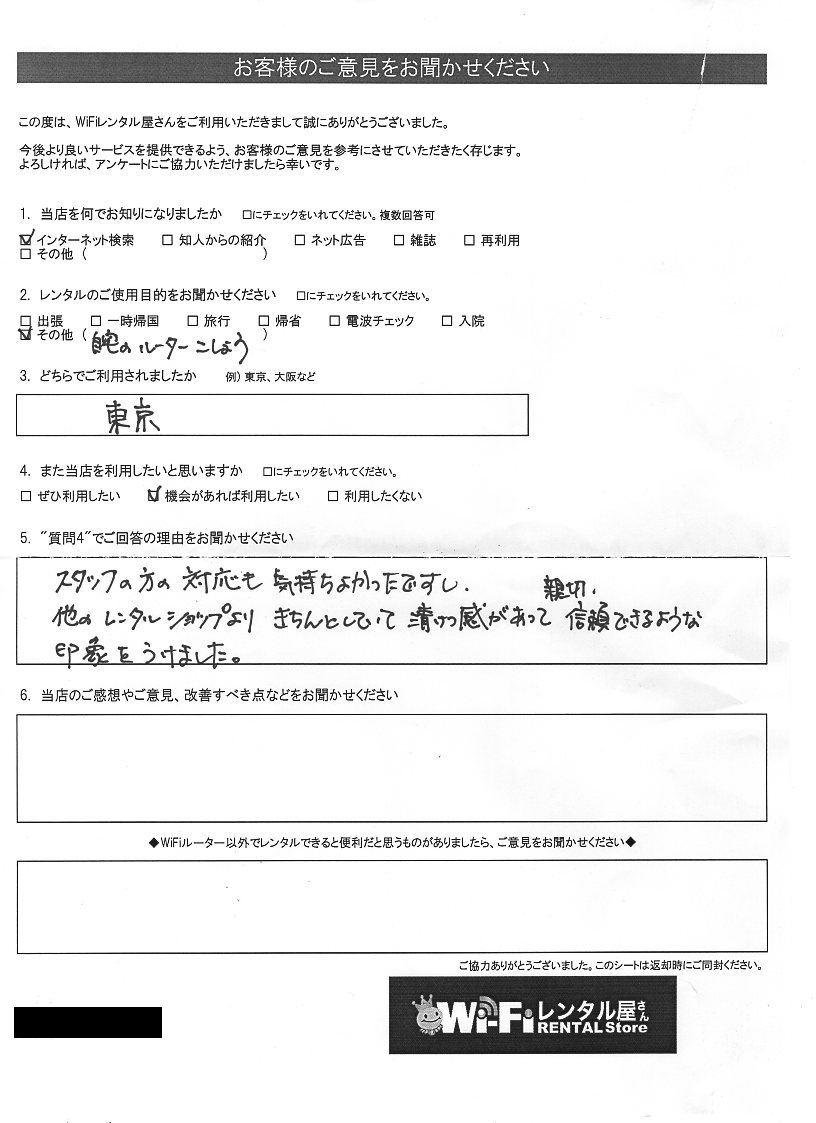 お客様のご意見をお聞かせください
この度は、WiFiレンタル屋さんをご利用いただきまして誠にありがとうございました。
今後より良いサービスを提供できるよう、お客様のご意見を参考にさせていただきたく存じます。
よろしければ、アンケートにご協力いただけましたら幸いです。
1. 当店を何でお知りになりましたか □にチェックをいれてください。複数回答可
☑ インターネット検索 □ 知人からの紹介 □ ネット広告 □ 雑誌 □ 再利用
□ その他 ( )
2. レンタルのご使用目的をお聞かせください □にチェックをいれてください。
□ 出張 □ 一時帰国 □ 旅行 □ 帰省 □ 電波チェック □ 入院
☑ その他 ( )
自宅のルーターこしょう
3. どちらでご利用されましたか 例) 東京、大阪など
東京
4. また当店を利用したいと思いますか □にチェックをいれてください。
□ ぜひ利用したい ☑ 機会があれば利用したい □ 利用したくない
5. "質問4"でご回答の理由をお聞かせください
スタッフの方の対応も気持ちよかったですし、親切、
他のレンタルショップよりきちんとしていて清けつ感があって信頼できるような
印象をうけました。
6. 当店のご感想やご意見、改善すべき点などをお聞かせください
◆WiFiルーター以外でレンタルできると便利だと思うものがありましたら、ご意見をお聞かせください◆
ご協力ありがとうございました。このシートは返却時にご同封ください。
Wi-Fiレンタル屋さん
RENTAL Store